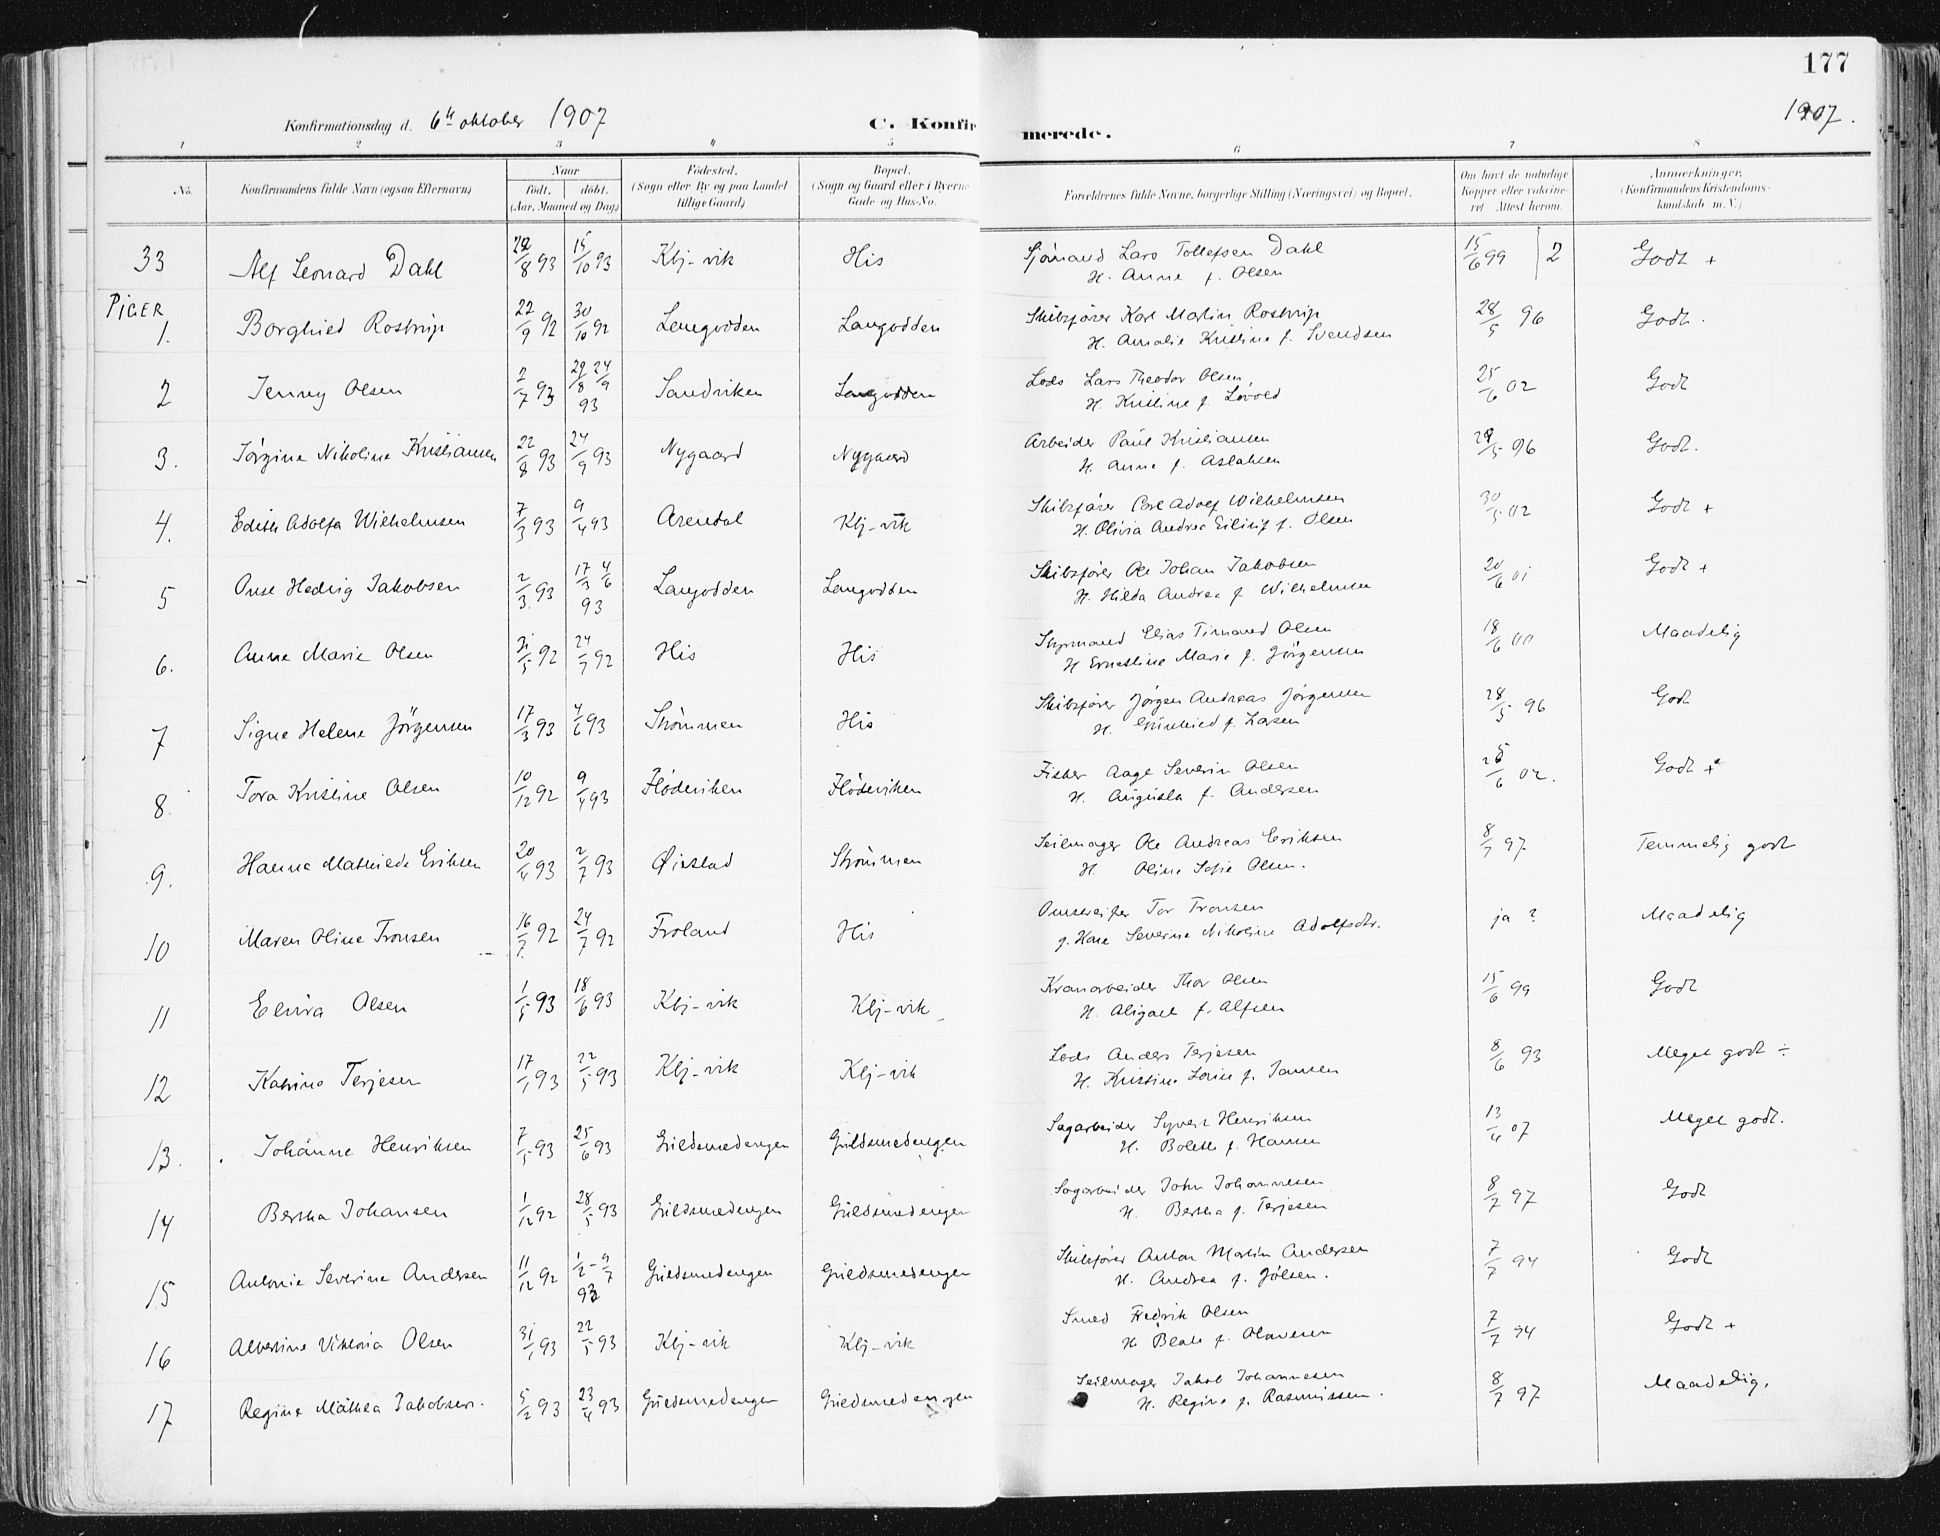 177
Konfirmationsdag d. 6te oktober 1907
C. Konfirmerede.
1907.
1 2 3 4 5 6 7 8
No. Konfirmandens fulde Navn (ogsaa Efternavn) Naar født. døbt. (Aar, Maaned og Dag) Fødested. (Sogn eller By og paa Landet tillige Gaard) Bopæl. (Sogn og Gaard eller i Byerne Gade og Hus-No. Forældrenes fulde Navne, borgerlige Stilling (Næringsvei) og Bopæl. Om havt de naturlige Kopper eller vaksineret. Attest herom. Anmerkninger. (Konfirmandens Kristendomskundskab m. V.)
33 Alf Leonard Dahl 22/8 93 15/10 93 Kbj-vik His Sjømand Lars Tollefsen Dahl 15/6 99 2 Godt +
H. Anne f. Olsen
PIGER
1. Borghild Rostrup 22/9 92 30/10 92 Langodden Langodden Skibsfører Karl Martin Rostrup 28/5 96 Godt.
H. Amalie Kristine f. Svendsen
2 Jenny Olsen 2/7 93 29/8 24/9 93 Sandviken Langodden Lods Lars Theodor Olsen 25/6 02 Godt
H. Kristine f. Lövold
3. Jörgine Nikoline Kristiansen 22/8 93 24/9 93 Nygaard Nygaard Arbeider Paul Kristiansen 29/5 96 Godt.
H. Anne f. Aslaksen
4. Edith Adolfa Wilhelmsen 7/3 93 9/4 93 Arendal Kbj-vik Skibsfører Carl Adolf Wilhelmsen 30/5 02 Godt +
H. Olivia Andrea f. Olsen
5 Anse Hedvig Jakobsen 2/3 93 17/3 4/6 93 Langodden Langodden Skibsfører Ole Johan Jakobsen 20/6 01 Godt +
H. Hilda Andrea f. Wilhelmsen
6. Anna Marie Olsen 31/5 92 24/7 92 His His Styrmand Elias Olsen 18/6 00 Maadelig
H Ernestine Marie f. Jörgensen
7 Signe Helene Jörgensen 17/3 93 4/6 93 Strömmen His Skibsfører Jörgen Andreas Jörgensen 28/5 96 Godt
H. Gunhild f. Larsen
8. Tora Kristine Olsen 10/12 92 9/4 93 Flödeviken Flödeviken Fisker Aage Severin Olsen 25/6 02. Godt +
H. Augusta f. Andersen
9. Hanna Mathilde Eriksen 20/4 93 2/7 93 Øiestad Strömmen Seilmager Ole Andreas Eriksen 8/7 97 Temmelig godt
H. Oline Sofie Olsen.
10 Maren Oline Tronsen 16/7 92 24/7 92 Froland His Tor Tronsen ja ? Maadelig
g. Kone Severine Nikoline Adolfsdtr.
11 Elvira Olsen 1/5 93 18/6 93 Kbj-vik Kbj-vik Kranarbeider Thor Olsen 15/6 99 Godt
H. Abigael f. Alfsen
12 Katrine Terjesen 17/1 93 22/5 93 Kbj-vik Kbj-vik Lods Anders Terjesen 8/6 93 Meget godt ÷
H. Kristine Lovise f. Jansen
13. Johanne Henriksen 7/5 93 25/6 93 Guldsmedengen Guldsmedengen Sagarbeider Syvert Henriksen 13/4 07 Meget godt.
H. Bolette f. Hansen
14 Bertha Johansen 1/12 92 28/5 93 Guldsmedengen Guldsmedengen Sagarbeider John Johannesen 8/7 97 Godt
H. Bertha f. Terjesen
15 Antonie Severine Andersen 11/12 92 1/2 - 9/7 93 Guldsmedengen Guldsmedengen Skibsfører Anton Martin Andersen 7/7 94 Godt
H. Andrea f. Jölsen.
16 Albertine Viktoria Olsen 31/1 93 22/5 93 Kbj-vik Kbj-vik Smed Fredrik Olsen 7/7 94 Godt +
H Beate f. Olavesen
17 Regine Mathea Jakobsen. 5/2 93 23/4 93 Guldsmedengen Guldsmedengen Seilmager Jakob Johannesen 8/7 97 Maadelig.
H. Regine f. Rasmussen.